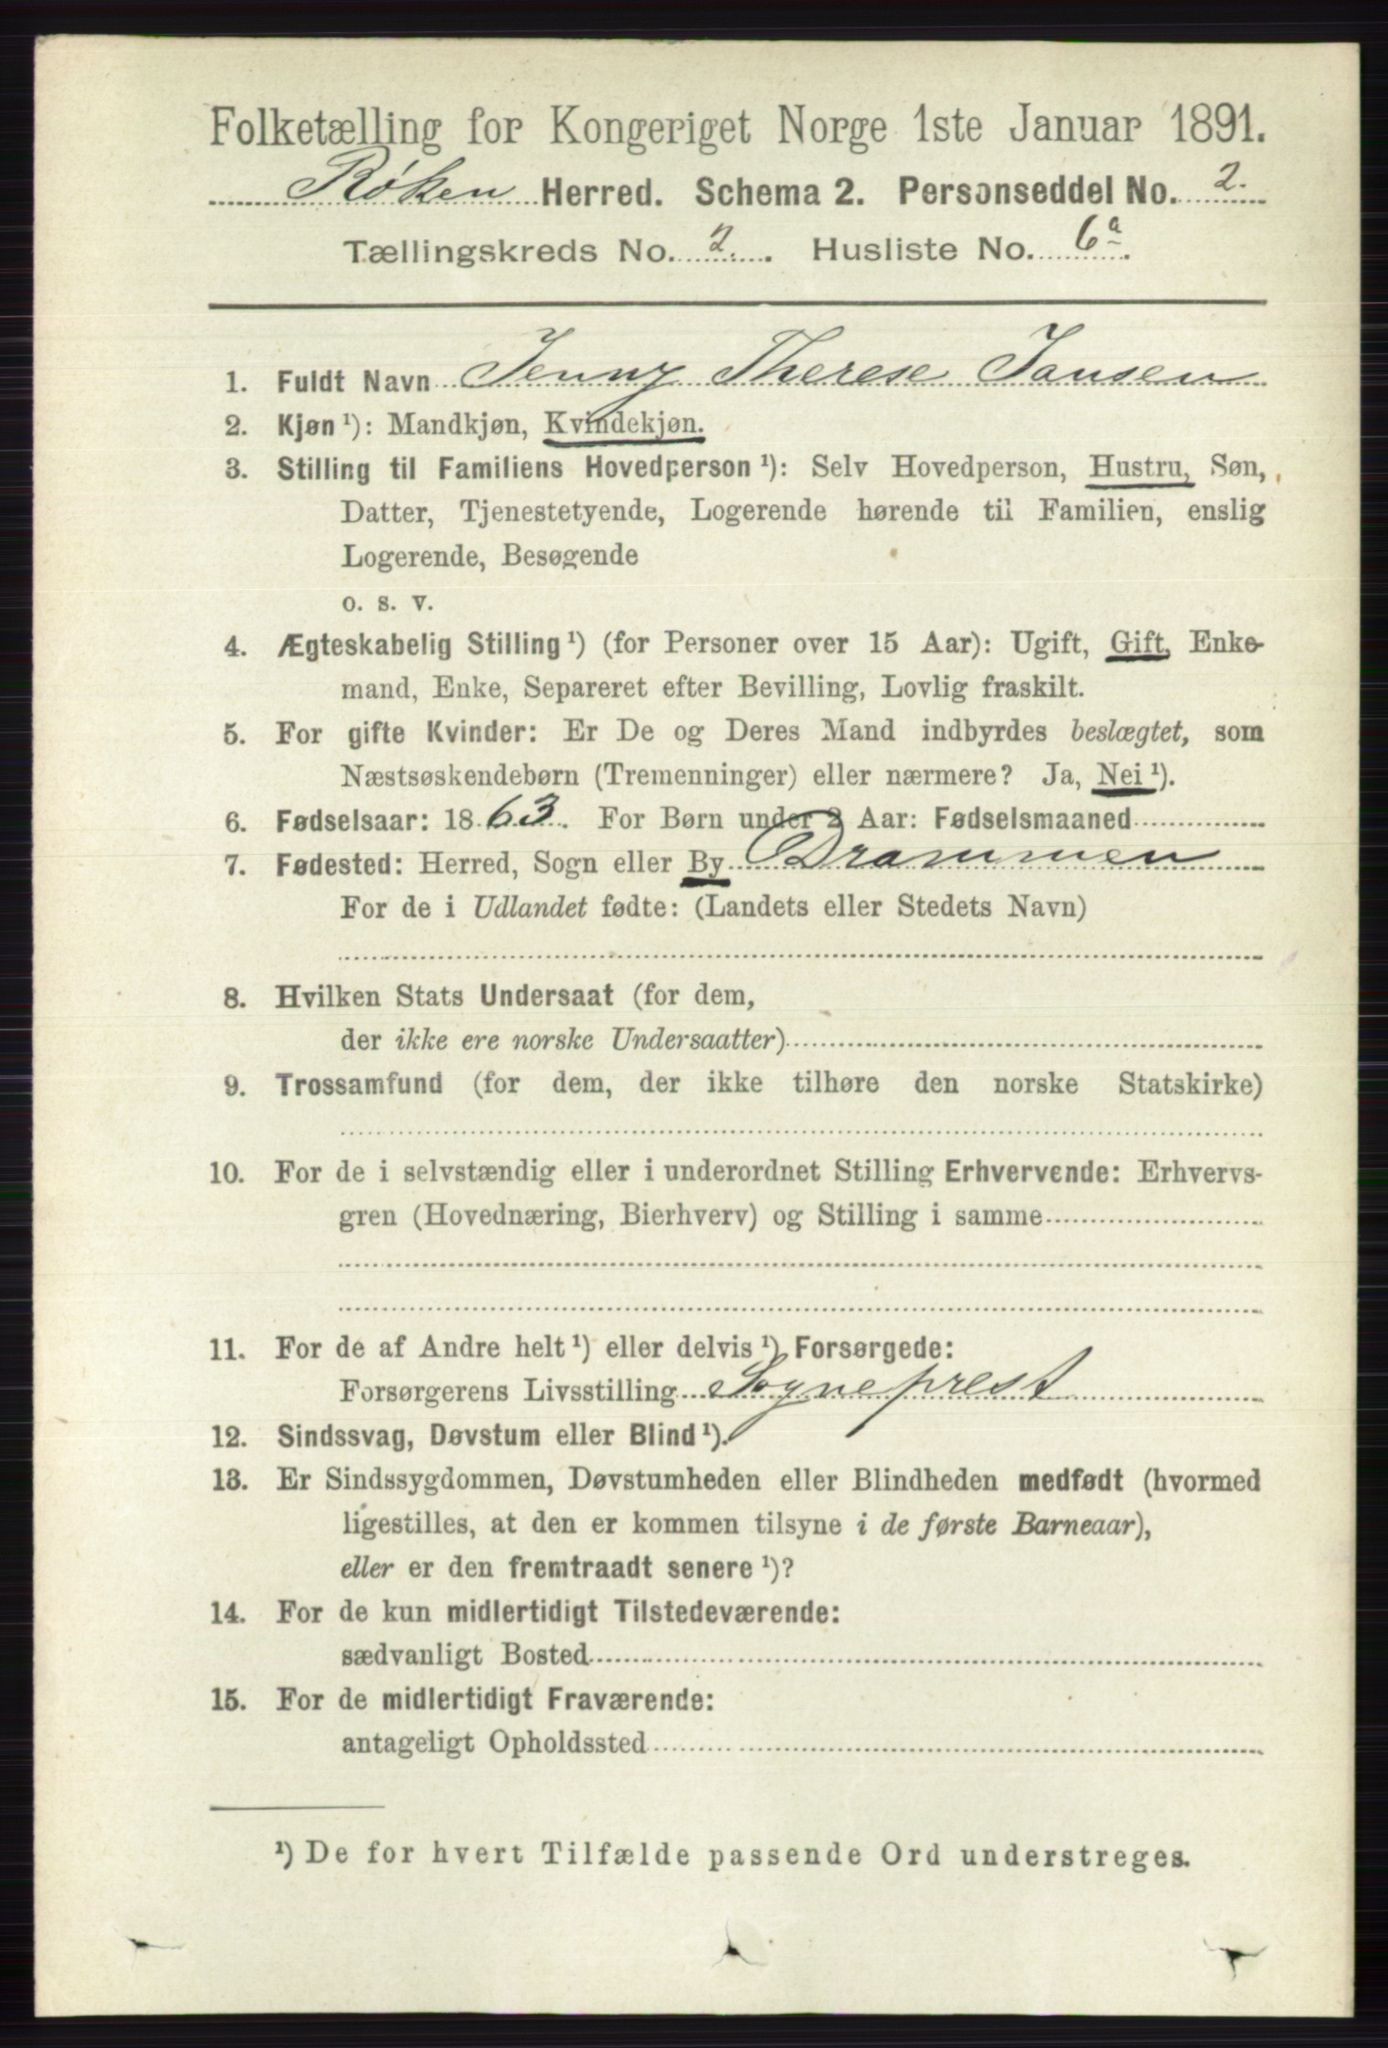 Folketælling for Kongeriget Norge 1ste Januar 1891.
Røken Herred. Schema 2. Personseddel No. 2.
Tællingskreds No. 2. Husliste No. 6a.
1. Fuldt Navn Jenny Therese Jansen
2. Kjøn ¹): Mandkjøn, Kvindekjøn.
3. Stilling til Familiens Hovedperson ¹): Selv Hovedperson, Hustru, Søn,
Datter, Tjenestetyende, Logerende hørende til Familien, enslig
Logerende, Besøgende
o. s. v.
4. Ægteskabelig Stilling ¹) (for Personer over 15 Aar): Ugift, Gift, Enke-
mand, Enke, Separeret efter Bevilling, Lovlig fraskilt.
5. For gifte Kvinder: Er De og Deres Mand indbyrdes beslægtet, som
Næstsøskendebørn (Tremenninger) eller nærmere? Ja, Nei ¹).
6. Fødselsaar: 1863. For Børn under 2 Aar: Fødselsmaaned
7. Fødested: Herred, Sogn eller By Drammen
For de i Udlandet fødte: (Landets eller Stedets Navn)
8. Hvilken Stats Undersaat (for dem,
der ikke ere norske Undersaatter)
9. Trossamfund (for dem, der ikke tilhøre den norske Statskirke)
10. For de i selvstændig eller i underordnet Stilling Erhvervende: Erhvervs-
gren (Hovednæring, Bierhverv) og Stilling i samme
11. For de af Andre helt ¹) eller delvis ¹) Forsørgede:
Forsørgerens Livsstilling Sogneprest
12. Sindssvag, Døvstum eller Blind ¹).
13. Er Sindssygdommen, Døvstumheden eller Blindheden medfødt (hvormed
ligestilles, at den er kommen tilsyne i de første Barneaar),
eller er den fremtraadt senere ¹)?
14. For de kun midlertidigt Tilstedeværende:
sædvanligt Bosted
15. For de midlertidigt Fraværende:
antageligt Opholdssted
¹) De for hvert Tilfælde passende Ord understreges.